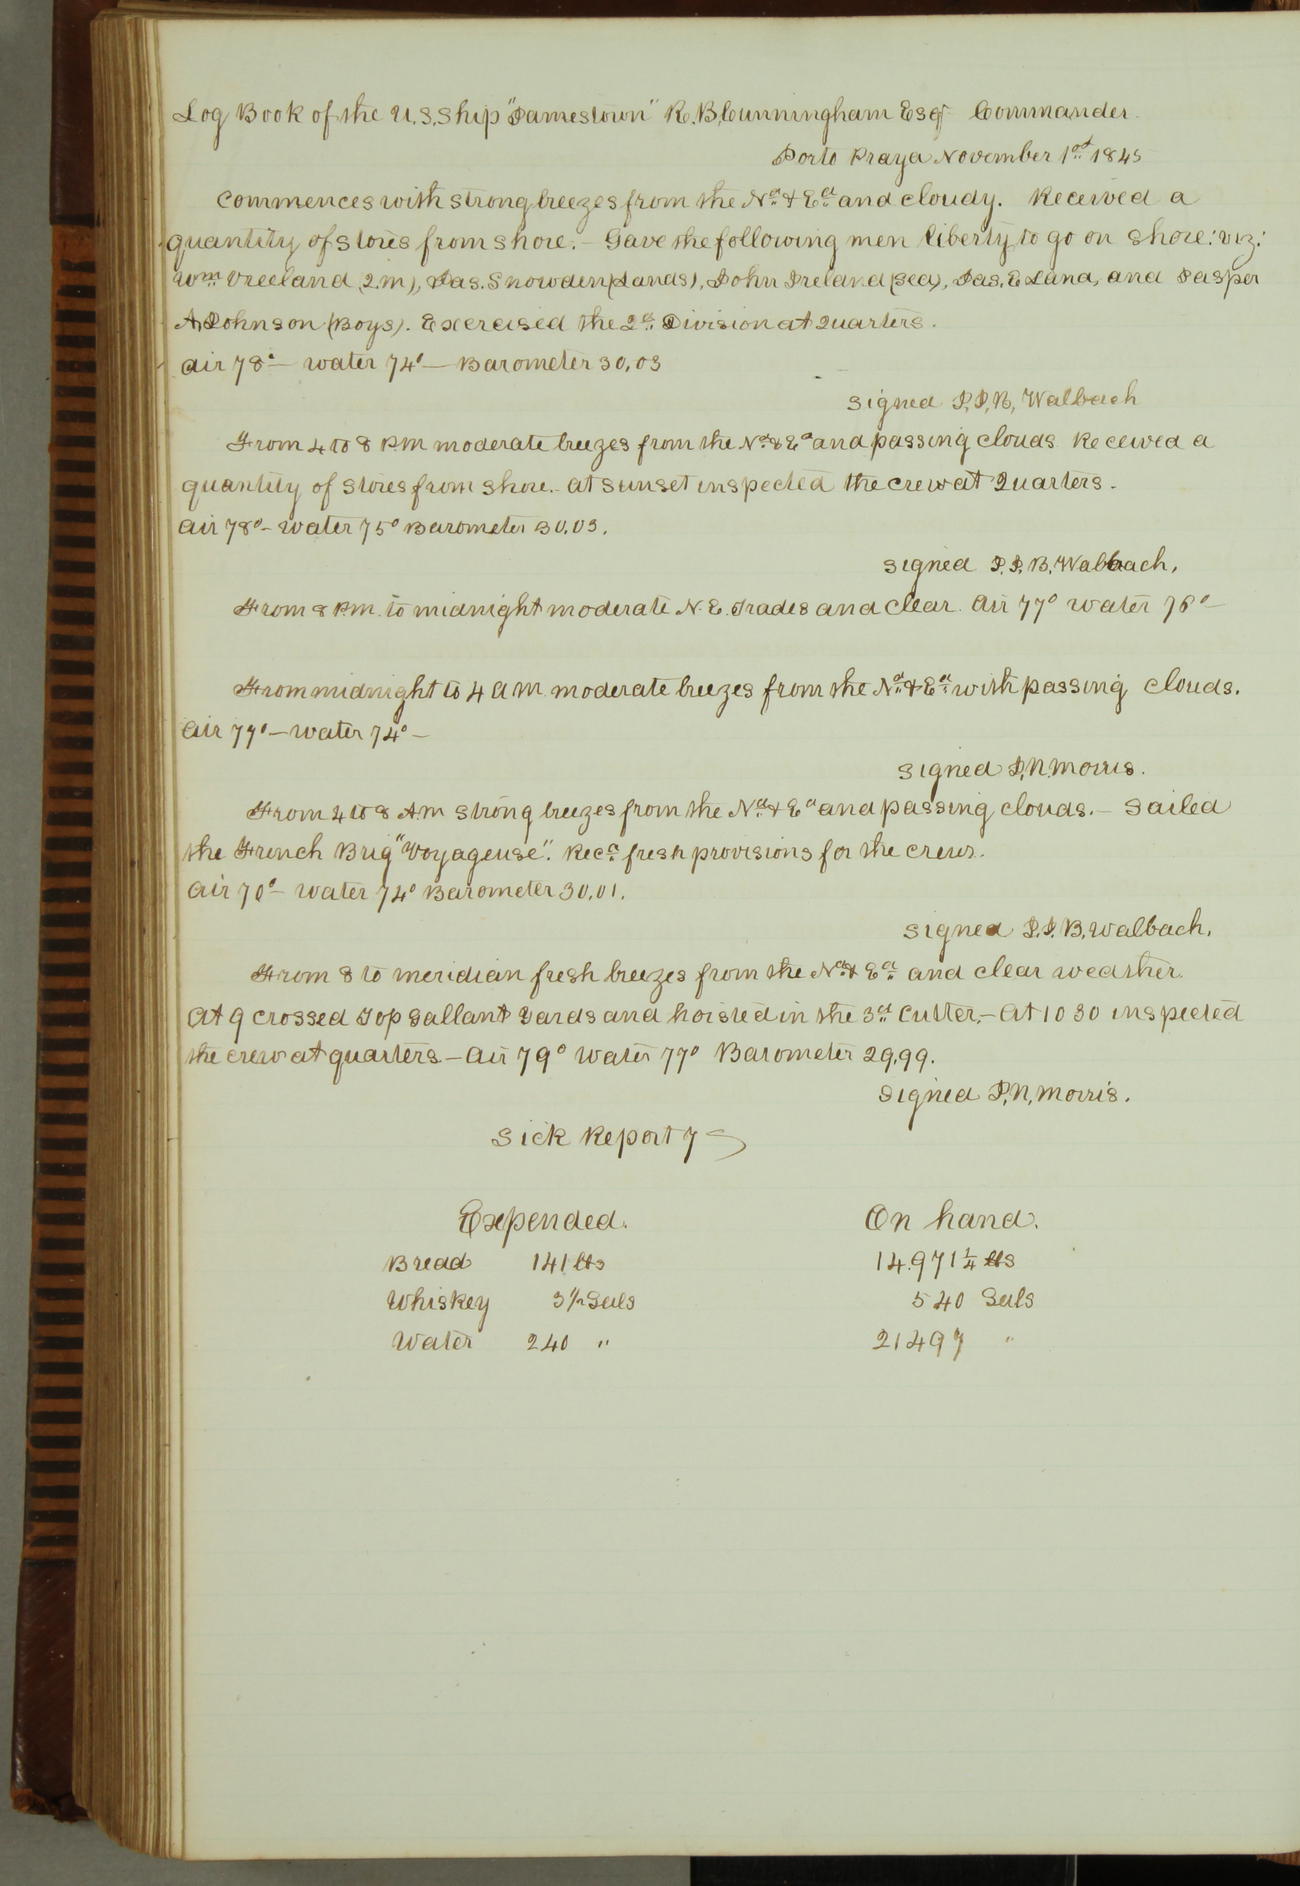 Log Book of the U.S. Ship "Jamestown" R. B. Cunningham Esqr Commander.
Porto Praya November 1st 1845
Commences with strong breezes from the Nd & Ed and cloudy. Received a
quantity of stores from shore. – Gave the following men liberty to go on shore: viz:
Wm Vreeland (2.M), Jas. Snowden (Lands), John Ireland (Sea), Jas. E Land, and Jasper
A. Johnson (Boys). Exercised the 2d Division at Quarters.
Air 78° – water 74° – Barometer 30,03
Signed J. J. B. Walbach
From 4 to 8 P.M moderate breezes from the Nd & Ed and passing clouds Received a
quantity of stores from shore. – At sunset inspected the crew at Quarters.
Air 78° – water 75° Barometer 30,03.
Signed J. J. B. Walbach.
From 8 P.M. to midnight moderate N. E. Trades and clear. Air 77° water 76° –
From midnight to 4 A M moderate breezes from the Nd & Ed with passing clouds.
Air 77° – water 74° –
Signed P. N. Morris.
From 4 to 8 A.M strong breezes from the Nd & Ed and passing clouds. – Sailed
the French Brig "Voyageuse". Recd fresh provisions for the crew.
Air 70° – water 74° Barometer 30,01.
Signed J. J. B. Walbach.
From 8 to meridian fresh breezes from the Nd & Ed and clear weather.
At 9 crossed Top Gallant Yards and hoisted in the 3d Cutter. – At 10 30 inspected
the crew at quarters – Air 79° Water 77° Barometer 29,99.
Signed P. N. Morris.
Sick Report 7
Expended. On hand.
Bread 141 lbs 14.971 1/4 lbs
Whiskey 3 1/2 Galls 540 Galls
Water 240 " 21497 "